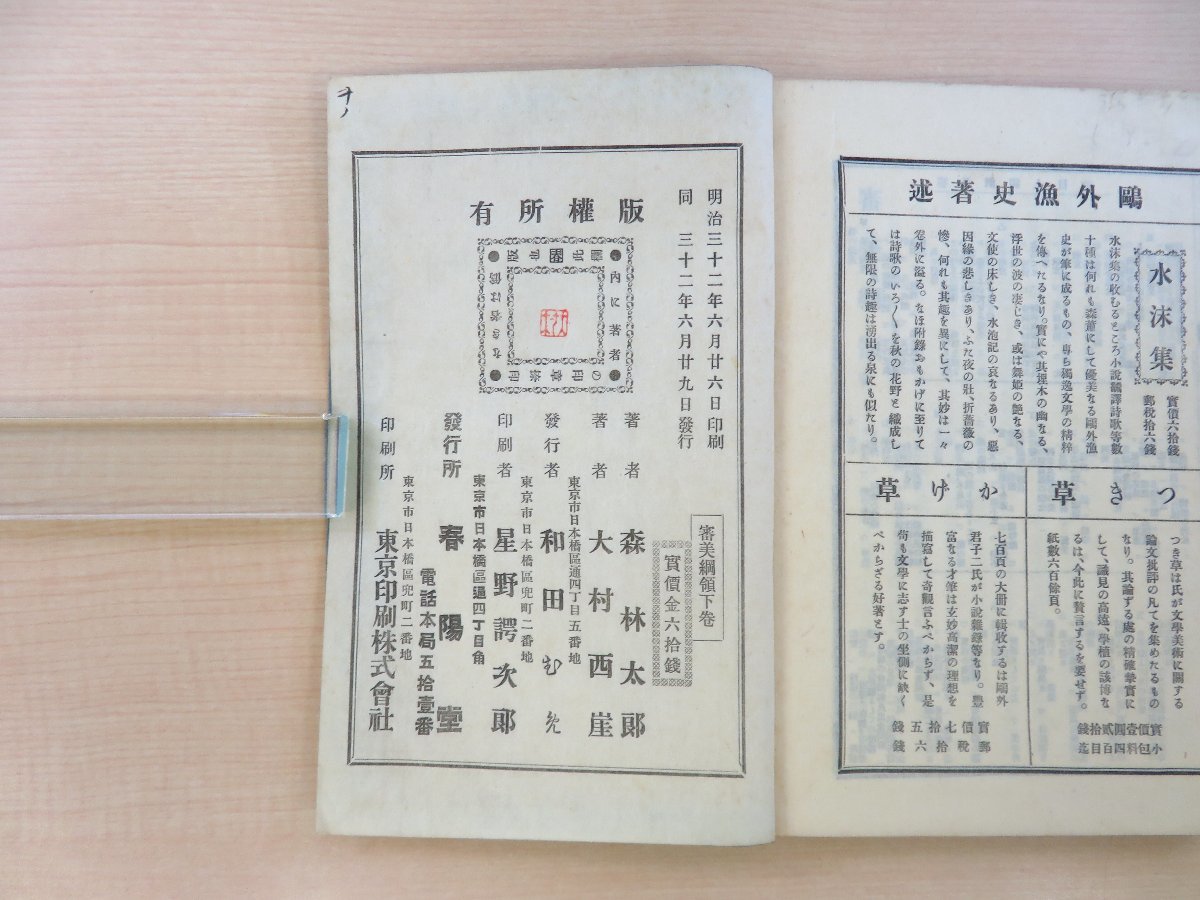 鷗外漁史著述
水沫集
實價六拾錢
郵稅拾六錢
水沫集の收むるところ小說飜譯詩歌等數
十種は何れも森蕭にして優美なる鷗外漁
史が筆に成るもの、專ら獨逸文學の精粹
を傳へたるなり。實にや其埋木の幽なる、
浮世の波の凄じき、或は舞姬の艶なる、
文使の床しき、水沲記の哀なるあり、惡
因緣の悲しきあり、ふた夜の壯、折薔薇の
慘、何れも其趣を異にして、其妙は一々
卷外に溢る。なほ附錄おもかげに至りて
は詩歌のいろ〳〵を秋の花野と織成し
て、無限の詩趣は湧出る泉にも似たり。
つき草
つき草は氏が文學美術に關する
論文批評の凡てを集めたるもの
なり。其論ずる處の精確摯實に
して、識見の高遠、學植の該博な
るは、今此に贅言するを要せず。
紙數六百餘頁。
實價壹圓貳拾錢
小包料四百目迄
かげ草
七百頁の大冊に輯收するは鷗外
君子二氏が小說雜錄等なり。豐
富なる才筆は玄妙高潔の理想を
描寫して奇觀言ふべからず、是
苟も文學に志す士の坐側に缺く
べからざる好著とす。
實價七拾五錢
郵稅拾六錢
ヲノ
明治三十二年六月廿六日印刷
同三十二年六月廿九日發行
版權所有
審美綱領下卷
實價金六拾錢
著者 森林太郞
著者 大村西崖
東京市日本橋區通四丁目五番地
發行者 和田むめ
東京市日本橋區兜町二番地
印刷者 星野諤次郞
東京市日本橋區通四丁目角
發行所 春陽堂
電話本局五拾壹番
東京市日本橋區兜町二番地
印刷所 東京印刷株式會社